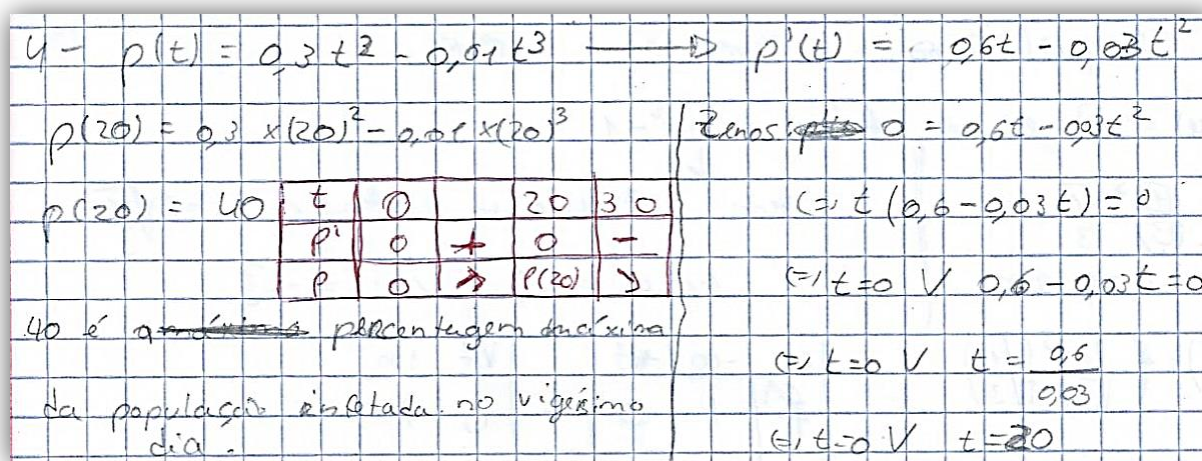 4 - p(t) = 0,3 t² - 0,01 t³ ⟶ p'(t) = 0,6t - 0,03t²
p(20) = 0,3 x(20)² - 0,01 x(20)³
p(20) = 40
t 0 20 30
p' 0 + 0 -
p 0 ↗ p(20) ↘
40 é a percentagem máxima
da população infetada no vigésimo
dia.
Zeros: 0 = 0,6t - 0,03t²
(=) t (0,6 - 0,03t) = 0
(=) t=0 V 0,6 - 0,03t = 0
(=) t=0 V t = 0,6/0,03
(=) t=0 V t=20